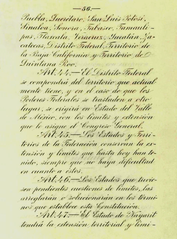 - 56 -
Puebla, Querétaro, San Luis Potosí,
Sinaloa, Sonora, Tabasco, Tamauli-
pas, Tlaxcala, Veracruz, Yucatán, Za-
catecas, Distrito Federal, Territorio de
la Baja California y Territorio de
Quintana Roo.
Art. 44.—El Distrito Federal
se compondrá del territorio que actual-
mente tiene, y en el caso de que los
Poderes Federales se trasladen a otro
lugar, se erigirá en Estado del Valle
de México, con los límites y extensión
que le asigne el Congreso General.
Art. 45.—Los Estados y Terri-
torios de la Federación conservan la ex-
tensión y límites que hasta hoy han te-
nido, siempre que no haya dificultad
en cuanto a éstos.
Art. 46.—Los Estados que tuvie-
sen pendientes cuestiones de límites, las
arreglarán o solucionarán en los térmi-
nos que establece esta Constitución.
Art. 47.—El Estado de Nayarit
tendrá la extensión territorial y lími-